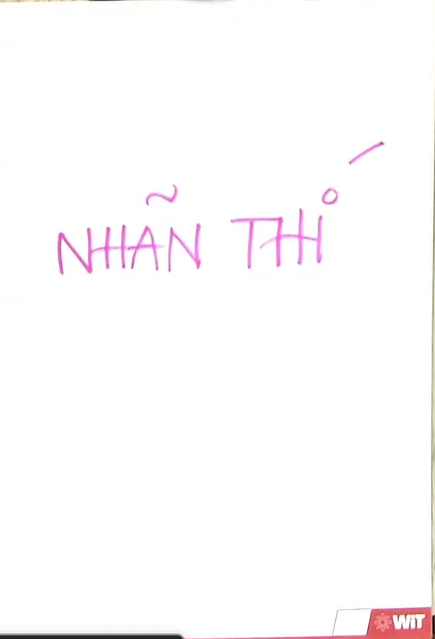 NHÃN THÍ
WIT